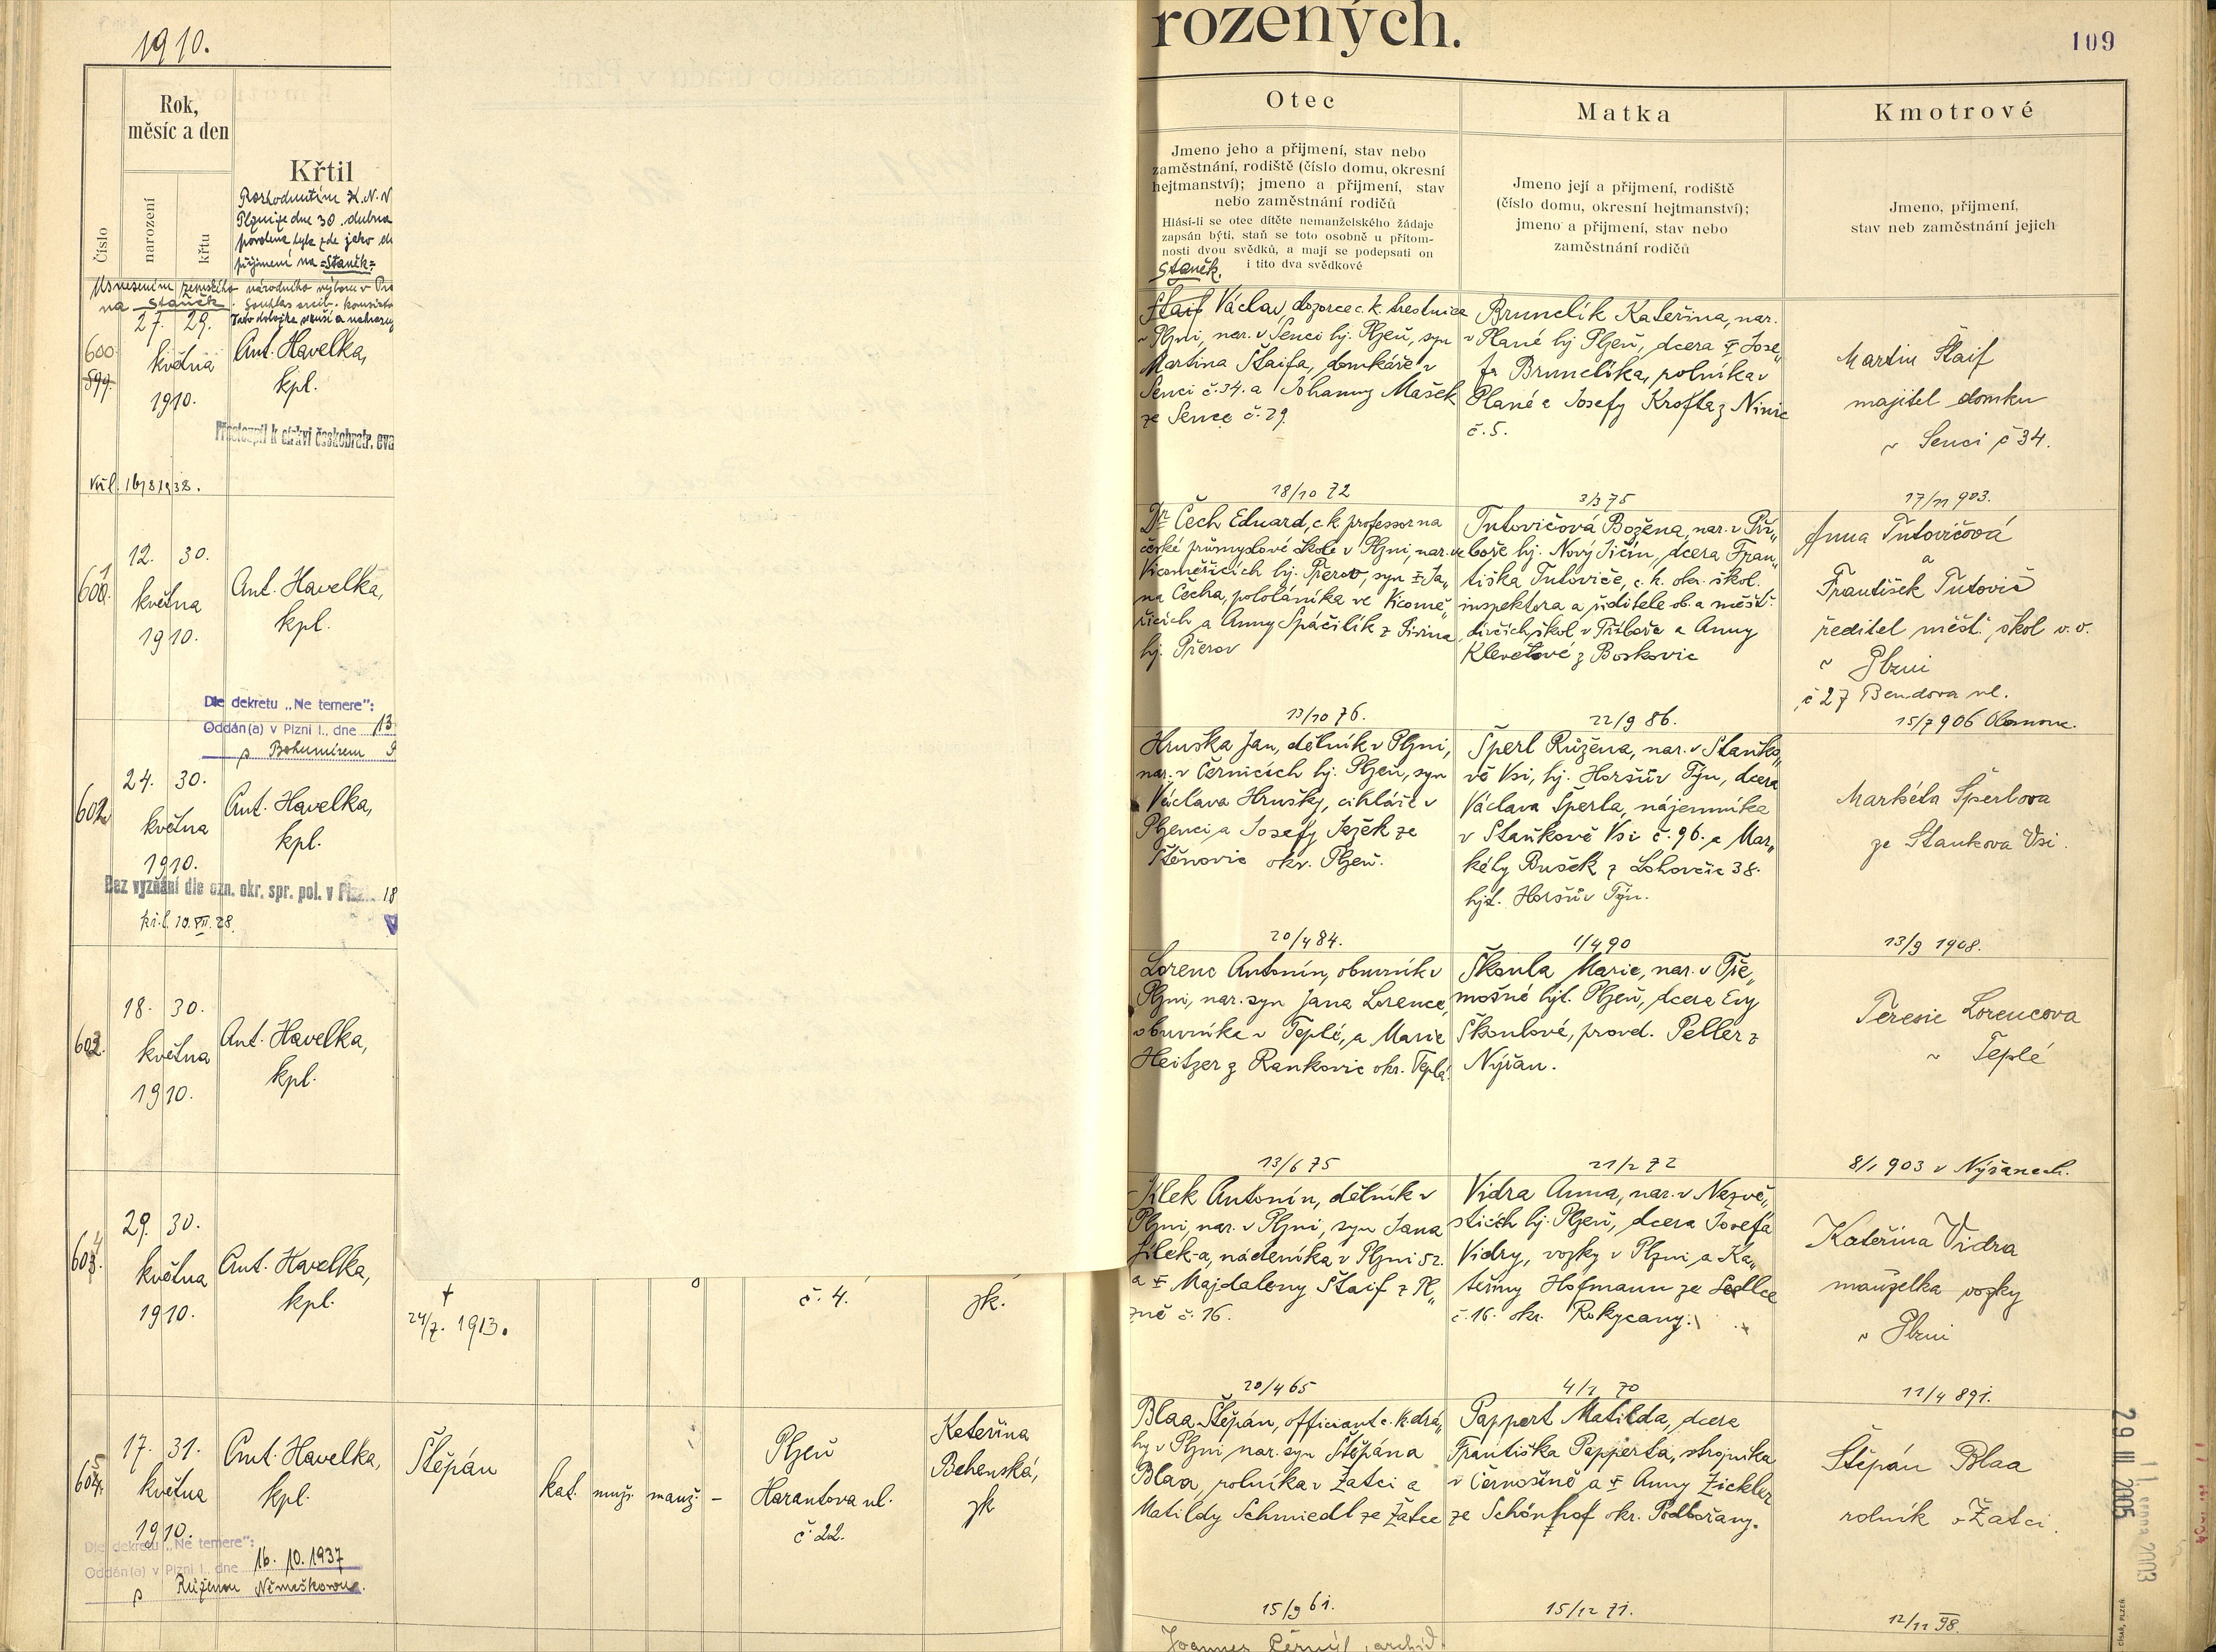 1910.
rozených.
109
Číslo
Rok,
měsíc a den
narození
křtu
Křtil
Rozhodnutím Z.N.V
Plzni ze dne 30. dubna
povolena byla zde jako
příjmení na =Staněk=
Usnesením zemského národního výboru v
na Staněk.
27. 29.
600
599.
května
1910.
Ant. Havelka,
kpl.
Přestoupil k církvi českobratr. eva
16/8 1938.
601.
12. 30.
května
1910.
Ant. Havelka,
kpl.
Dle dekretu „Ne temere":
Oddán(a) v Plzni I., dne 13
s Bohumírem
602
24. 30.
května
1910.
Ant. Havelka,
kpl.
Bez vyznání dle ozn. okr. spr. pol. v Plzni 18
10. VII. 28.
603.
18. 30.
května
1910.
Ant. Havelka,
kpl.
604.
29. 30.
května
1910.
Ant. Havelka,
kpl.
†
24/7. 1913.
č. 4.
zk.
605.
17. 31.
května
1910.
Ant. Havelka,
kpl.
Štěpán
kat. muž. manž. –
Plzeň
Harantova ul.
č. 22.
Kateřina
Behenská,
zk
Dle dekretu „Ne temere":
Oddán(a) v Plzni I., dne 16. 10. 1937
s Růženou Němečkovou.
Otec
Jmeno jeho a přijmení, stav nebo
zaměstnání, rodiště (číslo domu, okresní
hejtmanství); jmeno a přijmení, stav
nebo zaměstnání rodičů
Hlásí-li se otec dítěte nemanželského žádaje
zapsán býti, staň se toto osobně u přítom-
nosti dvou svědků, a mají se podepsati on
i tito dva svědkové
Staněk.
Štaif Václav, dozorce c. k. trestnice
v Plzni, nar. v Senci hj. Plzeň, syn
Martina Štaifa, domkáře v
Senci č. 34. a Johanny Mašek
ze Sence č. 29.
18/10 72
Dr Čech Eduard, c. k. professor na
české průmyslové škole v Plzni, nar. ve
Vicoměřicích hj. Přerov, syn † Ja„
na Čecha, pololáníka ve Vicomě„
řicích a Anny Spáčilík z
hj. Přerov
13/10 76.
Hruška Jan, dělník v Plzni,
nar. v Černicích hj. Plzeň, syn
Václava Hrušky, cihláře v
Plzenci a Josefy Ježek ze
Štěnovic okr. Plzeň.
20/4 84.
Lorenc Antonín, obuvník v
Plzni, nar. syn Jana Lorence,
obuvníka v Teplé, a Marie
Heitzer z Rankovic okr. Teplá.
13/6 75
Jílek Antonín, dělník v
Plzni, nar. v Plzni, syn Jana
Jílek-a, nádeníka v Plzni 52.
a † Majdaleny Štaif z Pl„
zně č. 16.
20/4 65
Blaa Štěpán, officiant c. k. drá„
hy v Plzni nar. syn Štěpána
Blaa, rolníka v Žatci a
Matildy Schmiedl ze Žatce
15/9 61.
Joannes Černý, archid.
Matka
Jmeno její a přijmení, rodiště
(číslo domu, okresní hejtmanství);
jmeno a přijmení, stav nebo
zaměstnání rodičů
Brunclík Kateřina, nar.
v Plané hj Plzeň, dcera † Jose„
fa Brunclíka, rolníka v
Plané a Josefy Krofta z Ninic
č. 5.
3/3 75
Tutovičová Božena, nar. v Pří„
boře hj. Nový Jičín, dcera Fran„
tiška Tutoviče, c. k. okr. škol.
inspektora a ředitele ob. a měšť.
dívčích škol v Příboře a Anny
Klevetové z Boskovic
22/9 86.
Šperl Růžena, nar. v Staňko„
vě Vsi, hj. Horšův Týn, dcera
Václava Šperla, nájemníka
v Staňkově Vsi č. 96. a Mar„
kéty Bušek z Lohovčic 38.
hjt. Horšův Týn.
1/4 90
Škoula Marie, nar. v Tře„
mošné hjt. Plzeň, dcera Evy
Škoulové, provd. Peller z
Nýřan.
21/2 72
Vidra Anna, nar. v Nezvě„
sticích hj. Plzeň, dcera Josefa
Vidry, vozky v Plzni, a Ka„
teřiny Hofmann ze Sedlce
č. 16. okr. Rokycany.
4/1 70
Pappert Matilda, dcera
Františka Papperta, strojníka
v Černošíně a † Anny Zickler
ze Schönhof okr. Podbořany.
15/12 71.
Kmotrové
Jmeno, přijmení,
stav neb zaměstnání jejich
Martin Štaif
majitel domku
v Senci č 34.
17/11 903.
Anna Tutovičová
a
František Tutovič
ředitel měšť. škol v. v.
v Plzni
č 27 Bendova ul.
15/7 906 Olomouc.
Markéta Šperlova
ze Stankova Vsi.
13/9 1908.
Teresie Lorencova
v Teplé
8/1 903 v Nýřanech.
Kateřina Vidra
manželka vozky
v Plzni
11/4 891.
Štěpán Blaa
rolník v Žatci.
12/11 98.
29 III 2005
CÍSAŘ, PLZEŇ